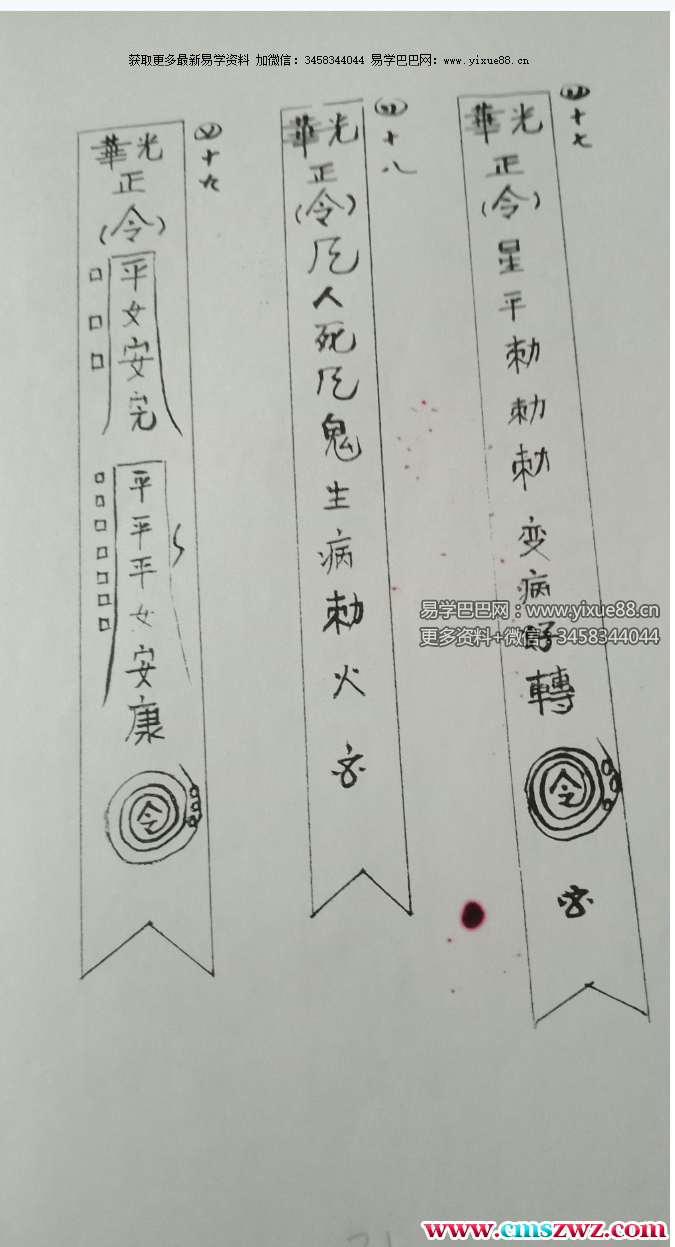 获取更多最新易学资料 加微信：3458344044 易学巴巴网：www.yixue88.cn
四十七
華光
正
(令)
星
平
勅
勅
勅
变
病
好
轉
令
四十八
華光
正
(令)
人
死
鬼
生
病
勅
火
四十九
華光
正
(令)
平
女
安
完
平
平
平
女
安
康
令
易学巴巴网：www.yixue88.cn
更多资料+微信：3458344044
www.cmszwz.com